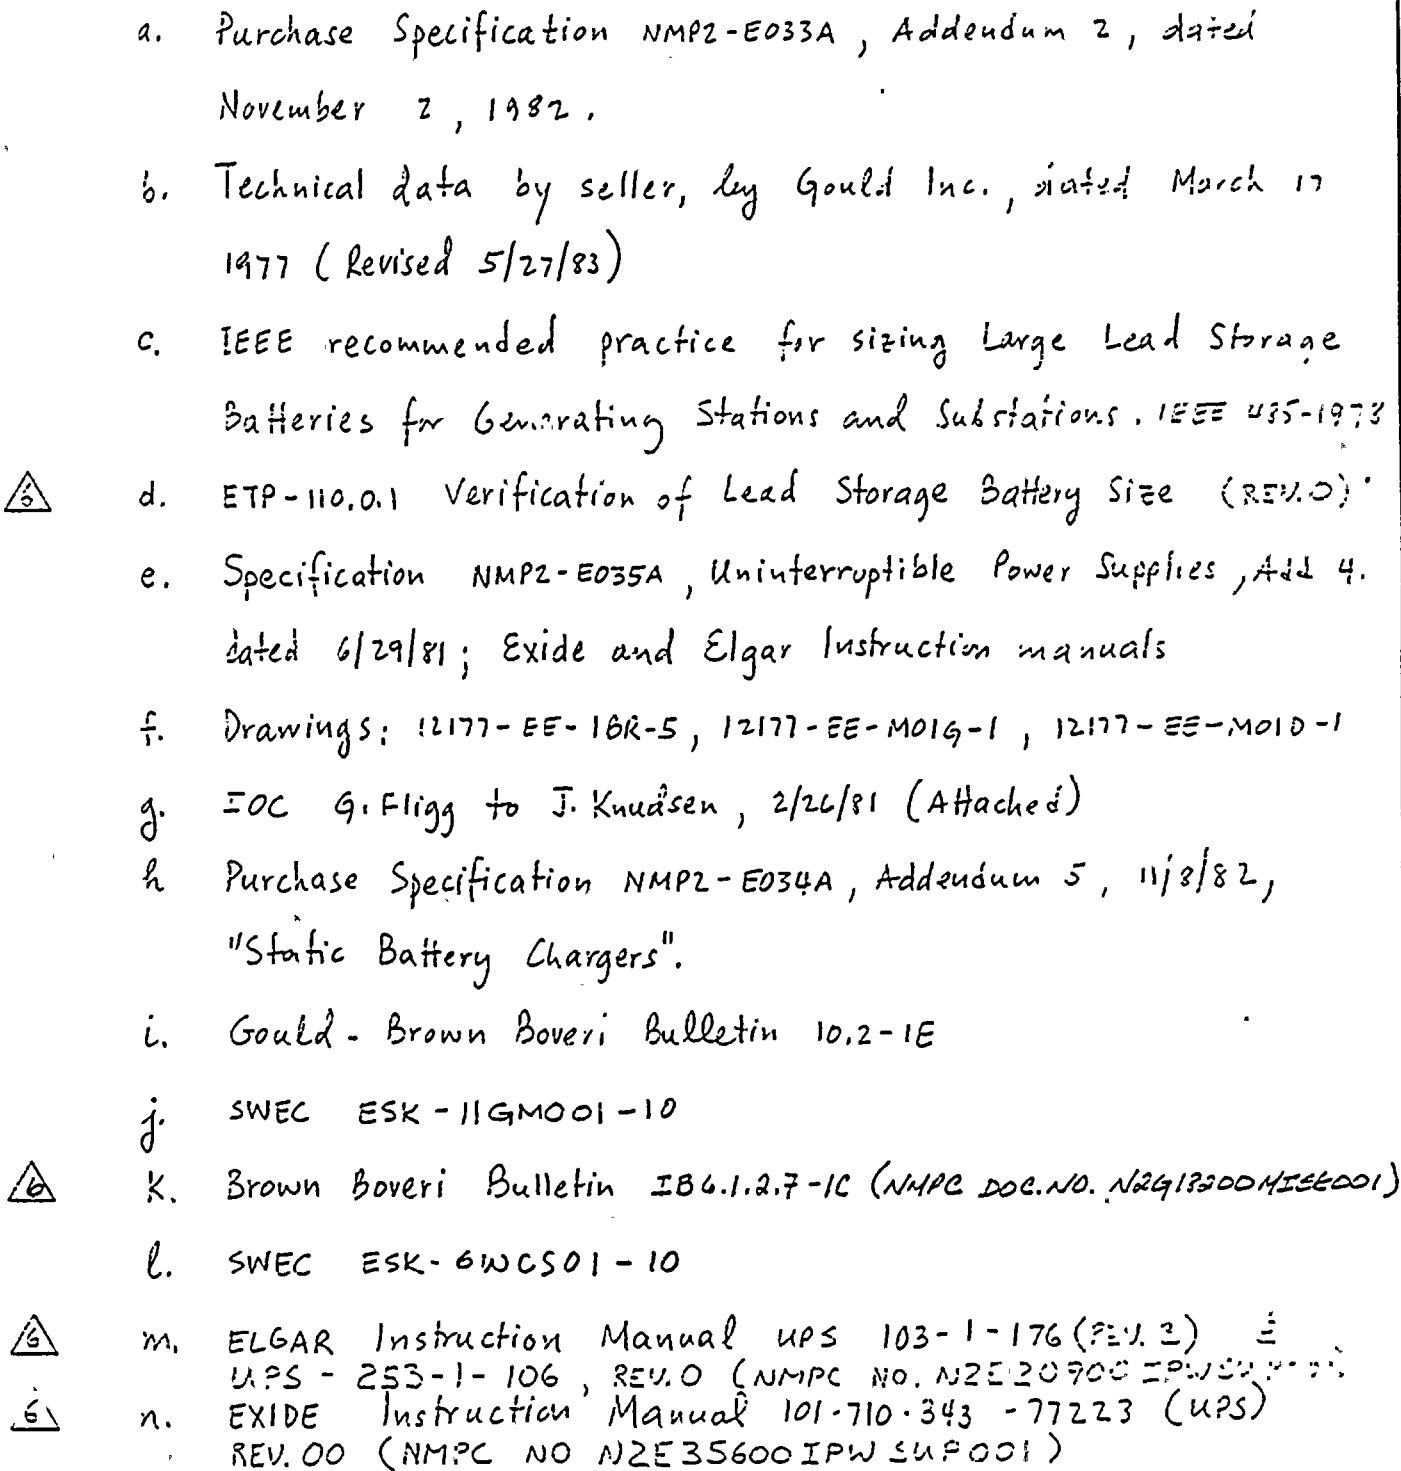 a. Purchase Specification NMP2-E033A, Addendum 2, dated
November 2, 1982.
b. Technical data by seller, by Gould Inc., dated March 17
1977 (Revised 5/27/83)
c. IEEE recommended practice for sizing Large Lead Storage
Batteries for Generating Stations and Substations. IEEE 485-1978
d. ETP-110.0.1 Verification of Lead Storage Battery Size (REV.0)
e. Specification NMP2-E035A, Uninterruptible Power Supplies, Add 4.
dated 6/29/81; Exide and Elgar Instruction manuals
f. Drawings: 12177-EE-1BR-5, 12177-EE-M01G-1, 12177-EE-M01D-1
g. IOC G. Fligg to J. Knudsen, 2/26/81 (Attached)
h Purchase Specification NMP2-E034A, Addendum 5, 11/8/82,
"Static Battery Chargers".
i. Gould-Brown Boveri Bulletin 10.2-1E
j. SWEC ESK-11GMO01-10
6 k. Brown Boveri Bulletin IB6.1.2.7-1C (NMPC DOC. NO.
l. SWEC ESK-6WCS01-10
6 m. ELGAR Instruction Manual UPS 103-1-176 (REV. 2)
UPS-253-1-106, REV.0 (NMPC NO.
6 n. EXIDE Instruction Manual 101-710-343-77223 (UPS)
REV. 00 (NMPC NO N2E35600IPWSUP001)